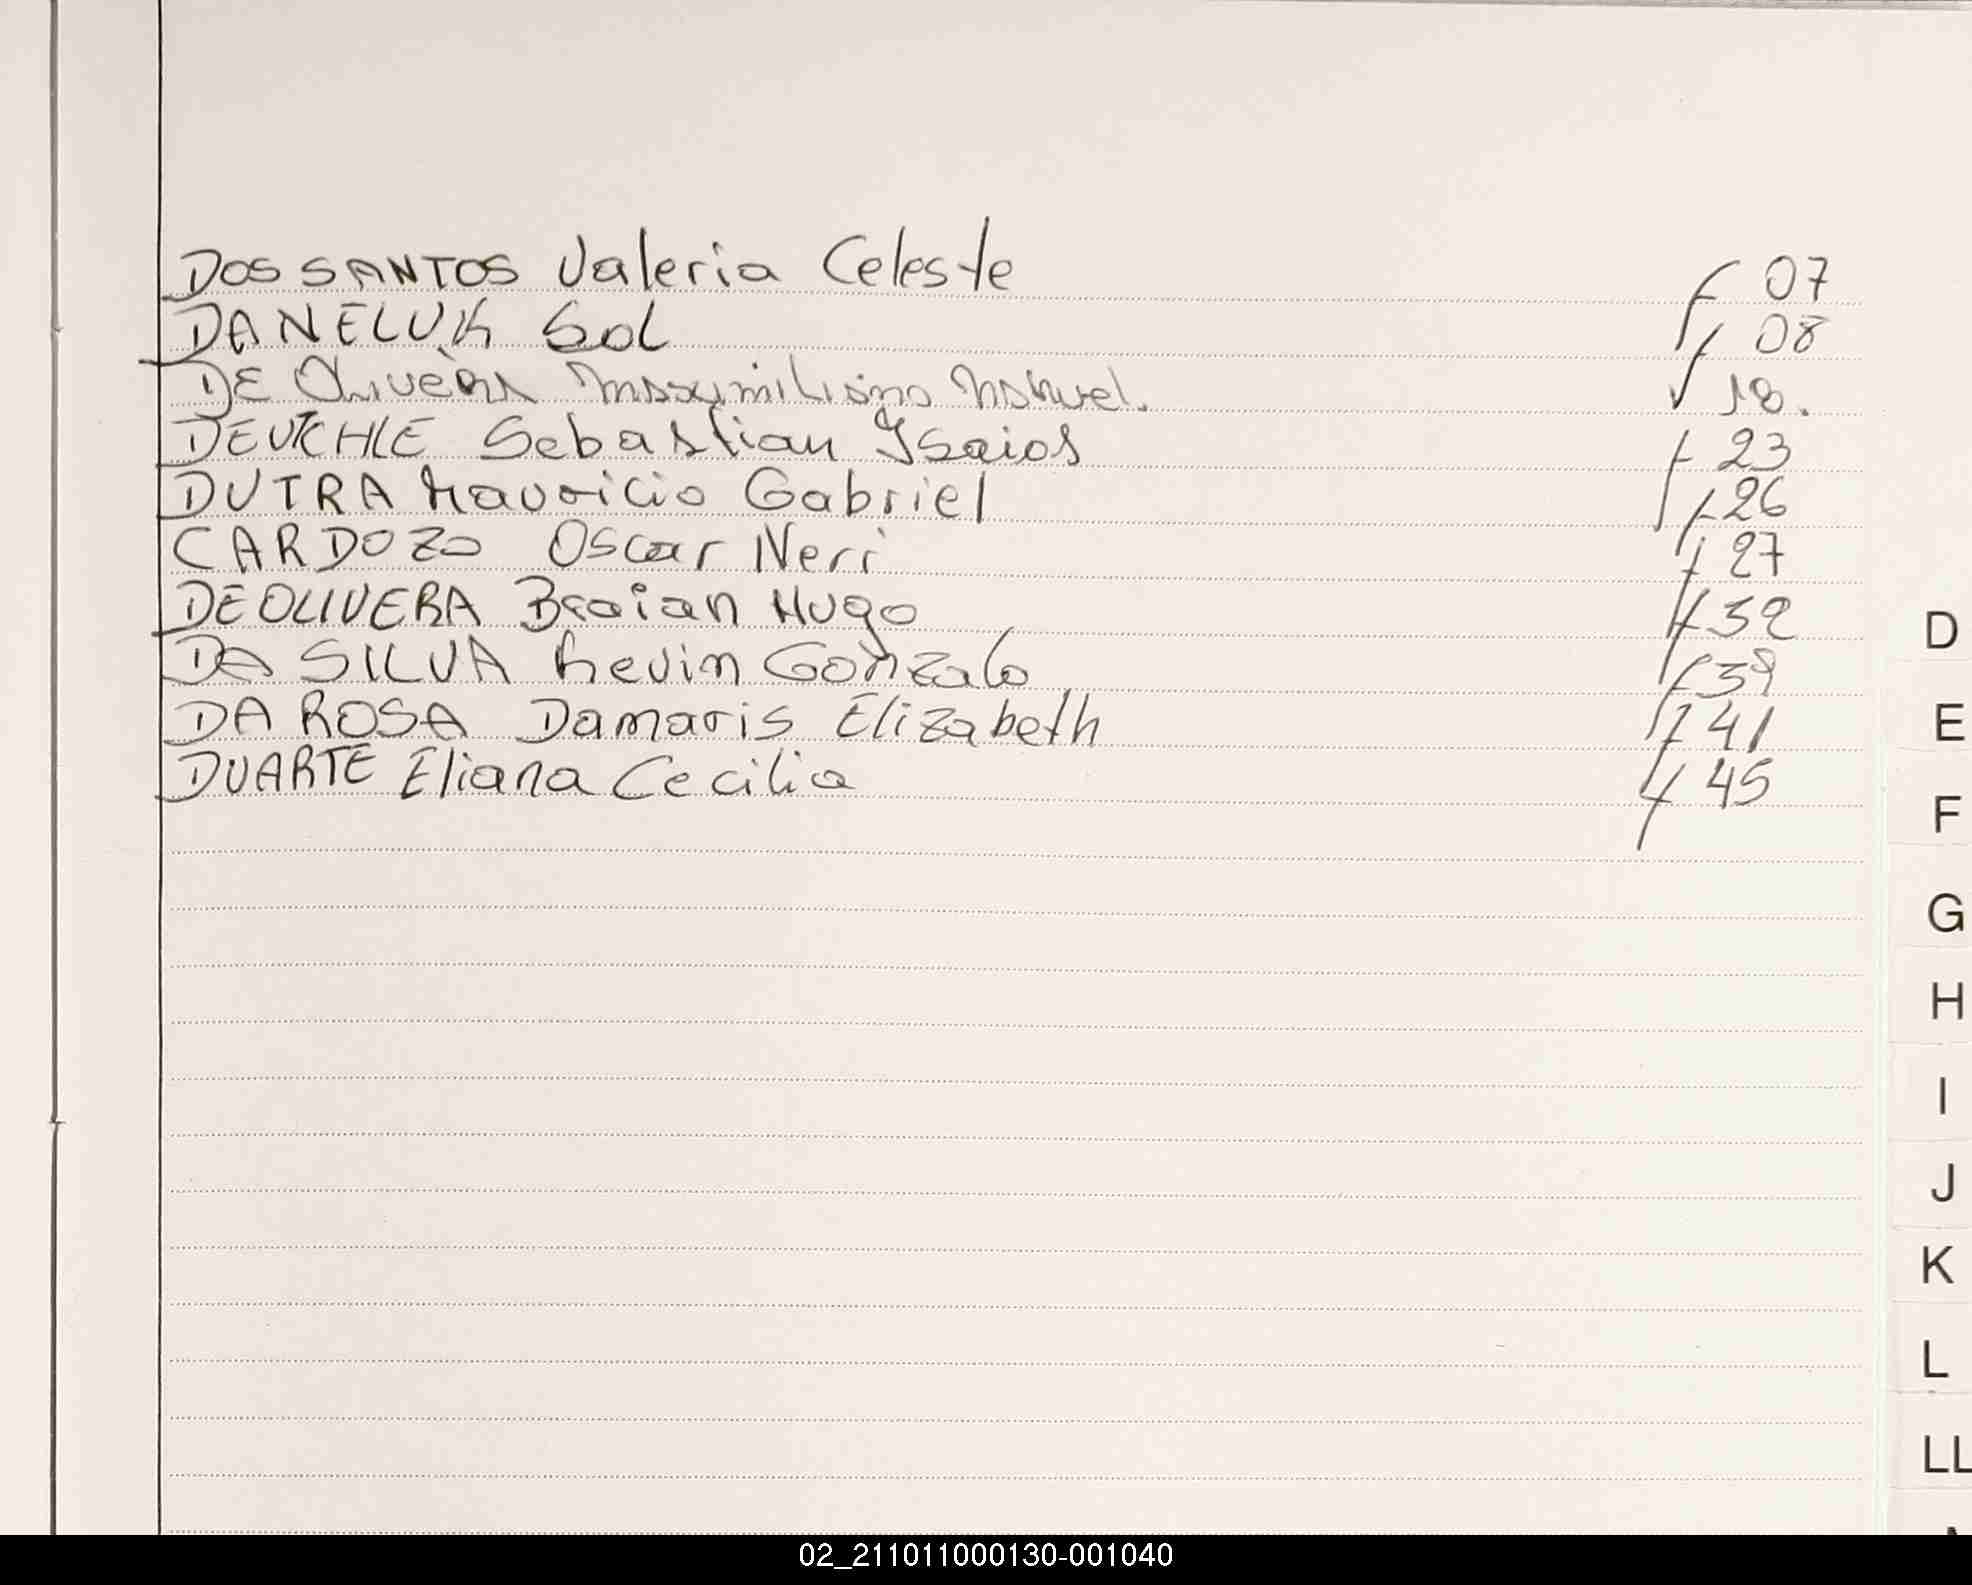 DOS SANTOS Valeria Celeste f 07
DANELUK Sol f 08
DE Olivera Maximiliano Nahuel. f 18.
DEUTCHLE Sebastian Isaias f 23
DUTRA Mauricio Gabriel f 26
CARDOZO Oscar Neri f 27
DEOLIVERA Braian Hugo f 32
DA SILVA Kevin Gonzalo f 39
DA ROSA Damaris Elizabeth f 41
DUARTE Eliana Cecilia f 45
D
E
F
G
H
I
J
K
L
LL
02_211011000130-001040